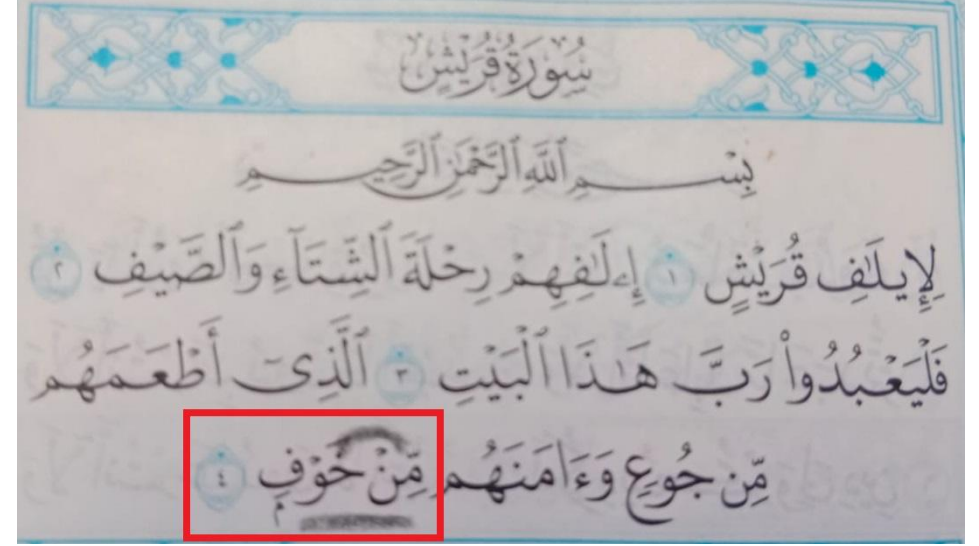 سُورَةُ قُرَيْشٍ
بِسْمِ ٱللَّهِ ٱلرَّحْمَٰنِ ٱلرَّحِيمِ
لِإِيلَٰفِ قُرَيْشٍ ١ إِۦلَٰفِهِمْ رِحْلَةَ ٱلشِّتَآءِ وَٱلصَّيْفِ ٢
فَلْيَعْبُدُواْ رَبَّ هَٰذَا ٱلْبَيْتِ ٣ ٱلَّذِىٓ أَطْعَمَهُم
مِّن جُوعٍ وَءَامَنَهُم مِّنْ خَوْفٍۭ ٤